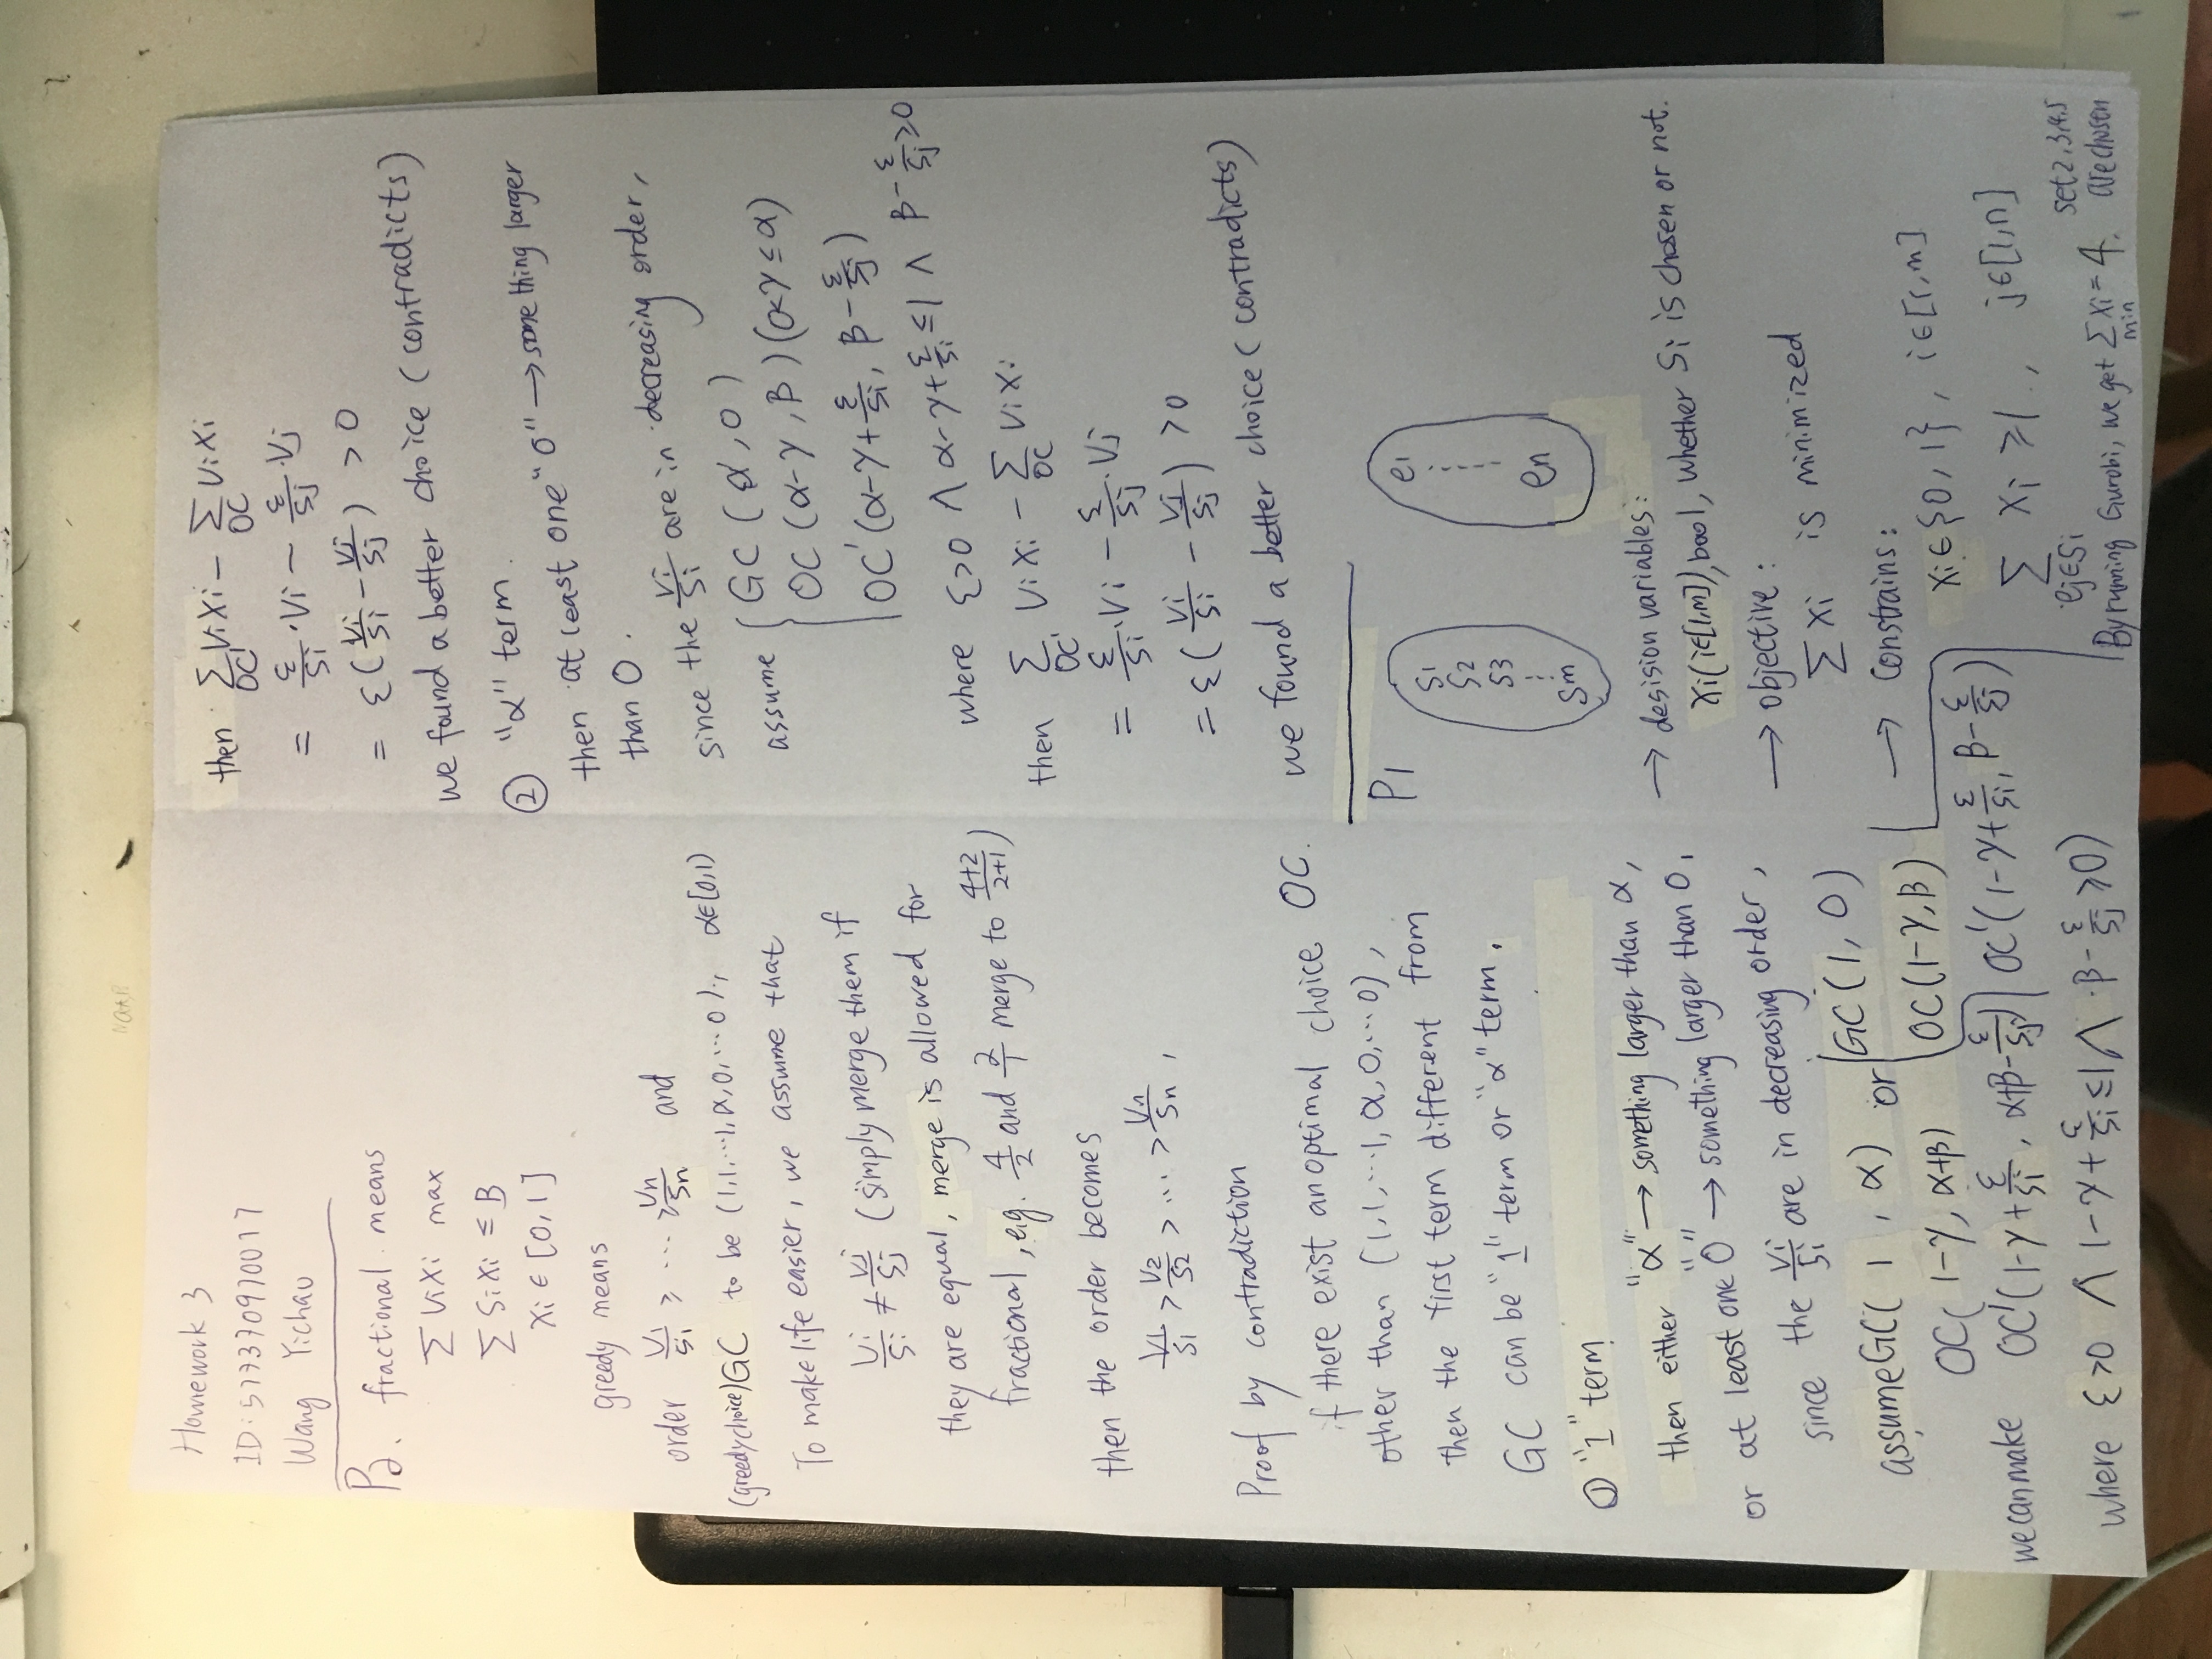 Homework 3
ID: 517370910017
Wang Yichao
P2. fractional means
∑ Vi Xi max
∑ Si Xi ≤ B
Xi ∈ [0,1]
greedy means
order V1/S1 ≥ ... ≥ Vn/Sn and
(greedy choice) GC to be (1,1,...1,α,0,...0)., α∈[0,1)
To make life easier, we assume that
Vi/Si ≠ Vj/Sj (simply merge them if
they are equal, merge is allowed for
fractional, e.g. 4/2 and 2/1 merge to (4+2)/(2+1))
then the order becomes
V1/S1 > V2/S2 > ... > Vn/Sn ,
Proof by contradiction
if there exist an optimal choice OC.
other than (1,1,...1,α,0,...0),
then the first term different from
GC can be "1" term or "α" term.
① "1" term
then either "α" → something larger than α,
or at least one "0" → something larger than 0,
since the Vi/Si are in decreasing order,
assume GC( 1 , α) or GC(1, 0)
OC( 1-γ, α+β) OC(1-γ, β)
we can make OC'(1-γ+ε/Si, α+β-ε/Sj) OC'(1-γ+ε/Si, β-ε/Sj)
where ε>0 ∧ 1-γ+ε/Si ≤1 ∧ β-ε/Sj ≥0)
then ∑OC' Vi Xi - ∑OC Vi Xi
= ε/Si ·Vi - ε/Sj ·Vj
= ε(Vi/Si - Vj/Sj) >0
we found a better choice (contradicts)
② "α" term.
then at least one "0" → something larger
than 0.
since the Vi/Si are in decreasing order,
assume { GC (α, 0)
OC (α-γ, β) (0<γ≤α)
OC'(α-γ+ε/Si, β-ε/Sj)
where ε>0 ∧ α-γ+ε/Si ≤1 ∧ β-ε/Sj ≥0
then ∑OC' Vi Xi - ∑OC Vi Xi
= ε/Si ·Vi - ε/Sj ·Vj
= ε(Vi/Si - Vj/Sj) >0
we found a better choice (contradicts)
P1
S1
S2
S3
Sm
e1
en
→ desision variables:
Xi(i∈[1,m]), bool, whether Si is chosen or not.
→ objective:
∑ Xi is minimized
→ Constrains:
Xi ∈ {0,1}, i∈[1,m]
∑ej∈Si Xi ≥1., j∈[1,n]
By running Gurobi, we get ∑Xi min = 4. set 2,3,4,5
are chosen